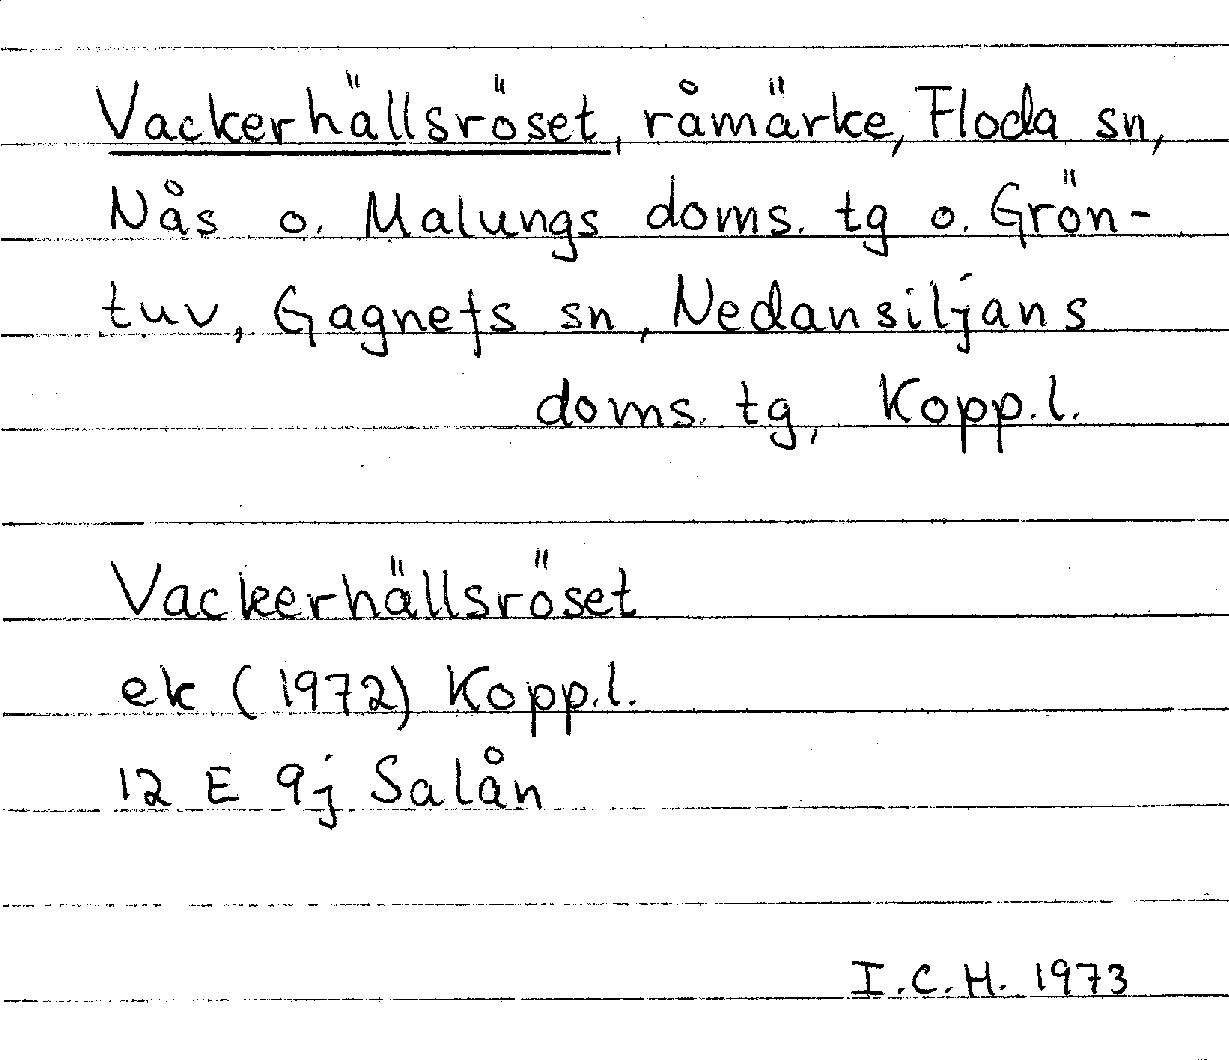 Vackerhällsröset, råmärke, Floda sn,
Nås o. Malungs doms. tg o. Grön-
tuv, Gagnefs sn, Nedansiljans
doms. tg, Kopp. l.
Vackerhällsröset
ek (1972) Kopp. l.
12 E 9j Salån
I.C.H. 1973